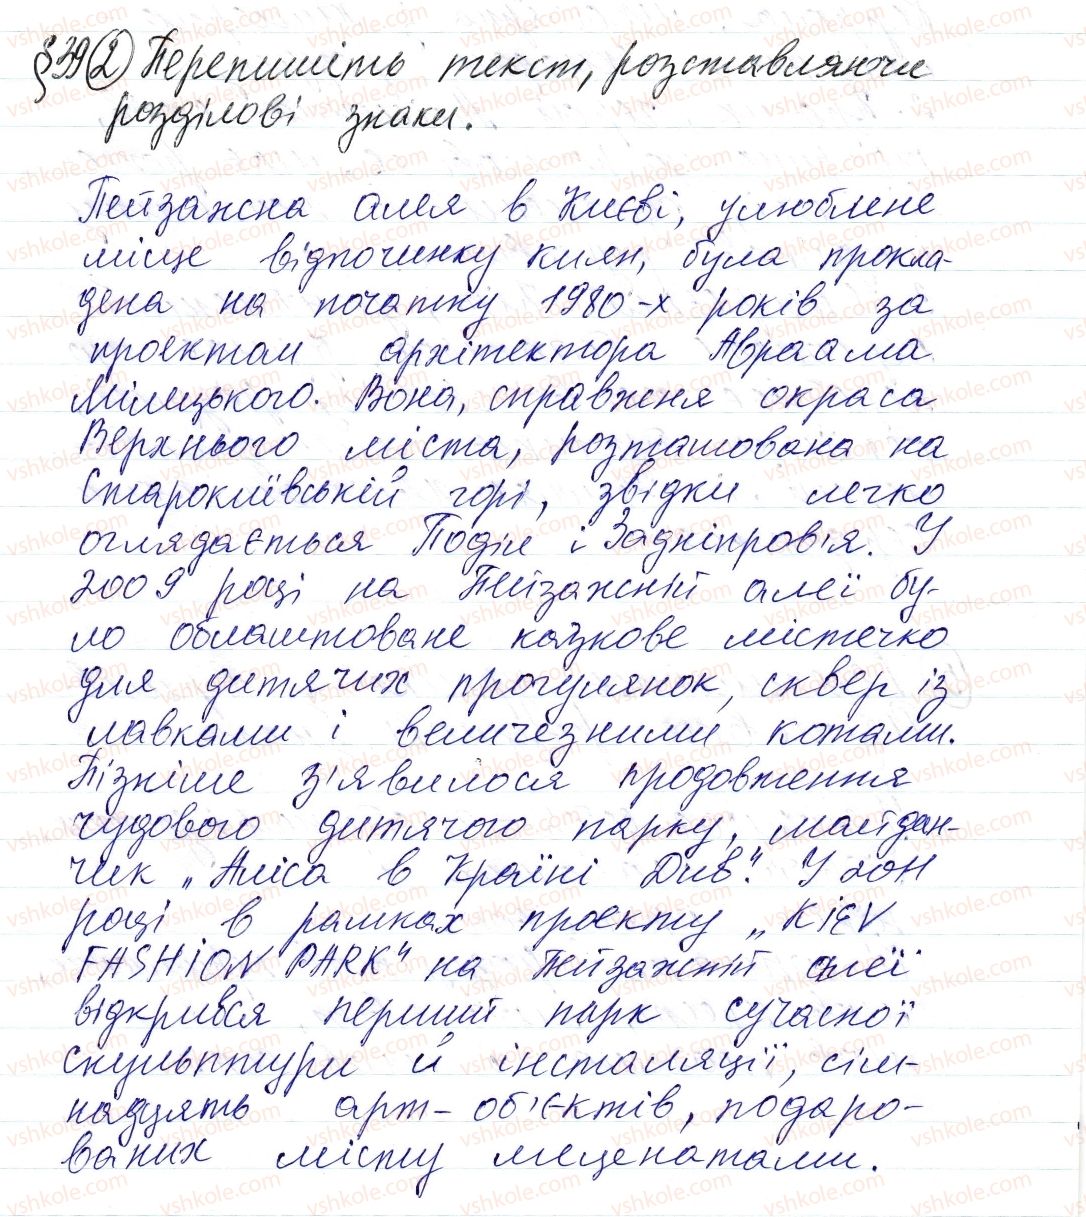 §39(2) Перепишіть текст, розставляючи
розділові знаки.
Пейзажна алея в Києві, улюблене
місце відпочинку киян, була прокла-
дена на початку 1980-х років за
проектом архітектора Авраама
Мілецького. Вона, справжня окраса
Верхнього міста, розташована на
Старокиївській горі, звідки легко
оглядається Поділ і Задніпров'я. У
2009 році на Пейзажній алеї бу-
ло облаштоване казкове містечко
для дитячих прогулянок, сквер із
лавками і величезними котами.
Пізніше з'явилося продовження
чудового дитячого парку, майдан-
чик „Аліса в Країні Див". У 2011
році в рамках проекту „KIEV
FASHION PARK" на Пейзажній алеї
відкрився перший парк сучасної
скульптури й інсталяції, сім-
надцять арт-об'єктів, подаро-
ваних місту меценатами.